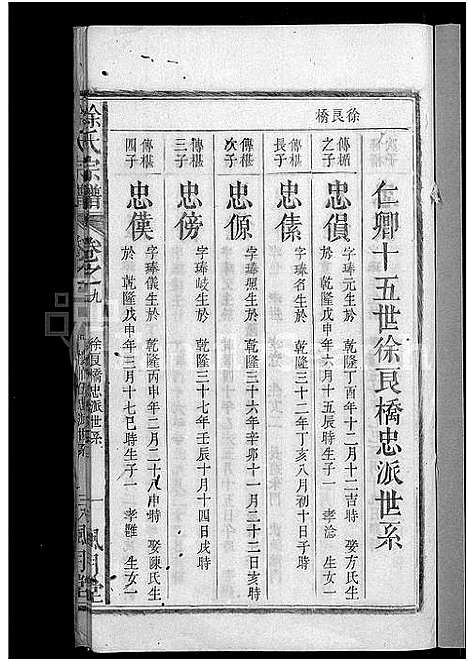 徐良橋
仁卿十五世徐良橋忠派世系
傳楯之子
忠傊
字瑧元生於 乾隆丁酉年十二月十二吉時 娶方氏生
於 乾隆戊申年六月十五辰時生子一 孝淰 生女一
傳椹長子
忠傃
字瑧名生於 乾隆三十二年丁亥八月初十日子時
傳椹次子
忠傆
字瑧照生於 乾隆三十六年辛卯十一月二十二日亥時
傳椹三子
忠傍
字瑧岐生於 乾隆三十七年壬辰十月十四日戌時
傳椹四子
忠僕
字瑧儀生於 乾隆丙申年二月二十八申時 娶陳氏生
於 乾隆戊申年三月十七巳時生子一 孝 生女一
徐氏宗譜
卷之九
徐良橋忠派世系
一
風月堂